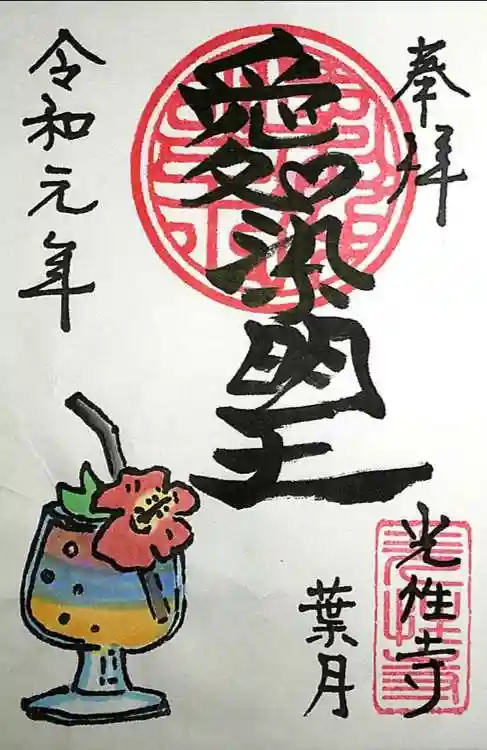 奉拝
愛染明王
光性寺
葉月
令和元年